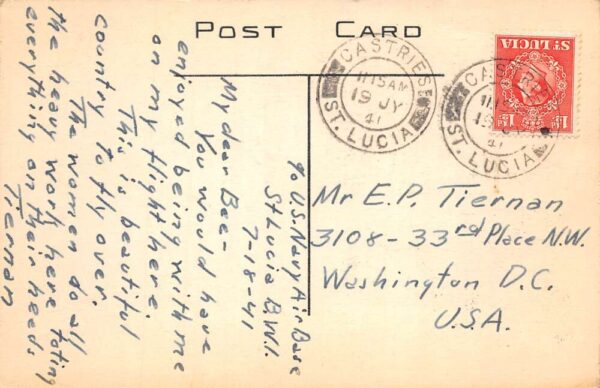 POST CARD
CASTRIES
11 15 AM
19 JY
41
ST. LUCIA
CASTRIES
19
41
ST. LUCIA
ST LUCIA
1½d 1½d
℅ U.S. Navy Air Base
St Lucia B.W.I.
7-18-41
My dear Bee-
You would have
enjoyed being with me
on my flight here.
This is beautiful
country to fly over.
The women do all
the heavy work here toting
everything on their heads
Tiernan
Mr E.P. Tiernan
3108-33rd Place N.W.
Washington D.C.
U.S.A.